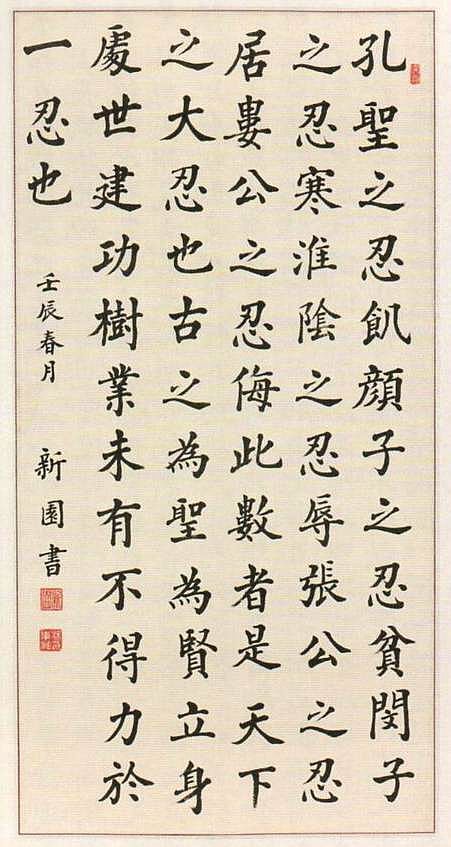 孔聖之忍飢顏子之忍貧閔子
之忍寒淮陰之忍辱張公之忍
居婁公之忍侮此數者是天下
之大忍也古之為聖為賢立身
處世建功樹業未有不得力於
一忍也
壬辰春月 新園書